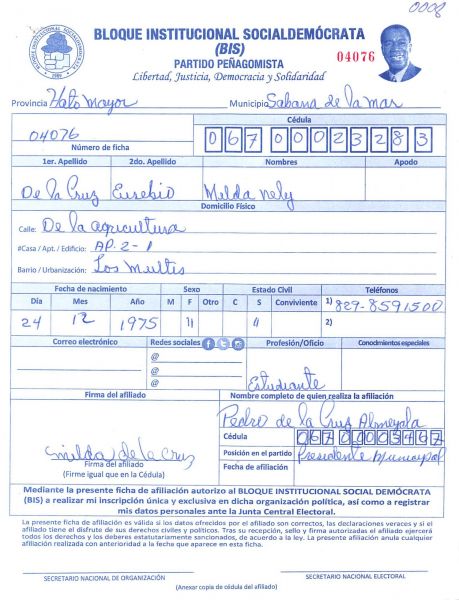 0008
BLOQUE INSTITUCIONAL SOCIALDEMÓCRATA
(BIS)
PARTIDO PEÑAGOMISTA
Libertad, Justicia, Democracia y Solidaridad
04076
BLOQUE INSTITUCIONAL SOCIALDEMOCRATA
Provincia Hato Mayor Municipio Sabana de la mar
04076
Número de ficha
Cédula
06700023283
1er. Apellido 2do. Apellido Nombres Apodo
De la Cruz Eusebio Milda Nely
Domicilio Físico
Calle: De la agricultura
#Casa / Apt. / Edificio: AP. 2-1
Barrio / Urbanización: Los Multis
Fecha de nacimiento Sexo Estado Civil Teléfonos
Día Mes Año M F Otro C S Conviviente 1) 829-8591500
24 12 1975 11 11 2)
Correo electrónico Redes sociales Profesión/Oficio Conocimientos especiales
@
@
@
Estudiante
Firma del afiliado Nombre completo de quien realiza la afiliación
Pedro de la Cruz Almeyda
Cédula
Posición en el partido Presidente Municipal
Fecha de afiliación
milda de la cruz
Firma del afiliado
(Firme igual que en la Cédula)
Mediante la presente ficha de afiliación autorizo al BLOQUE INSTITUCIONAL SOCIAL DEMÓCRATA
(BIS) a realizar mi inscripción única y exclusiva en dicha organización política, así como a registrar
mis datos personales ante la Junta Central Electoral.
La presente ficha de afiliación es válida si los datos ofrecidos por el afiliado son correctos, las declaraciones veraces y si el
afiliado tiene el disfrute de sus derechos civiles y políticos. Tras su recepción, sello y firma autorizadas el afiliado ejercerá
todos los derechos y los deberes estatutarios sancionados, de acuerdo a la ley. La presente afiliación anula cualquier
afiliación realizada con anterioridad a la fecha que aparece en esta ficha.
SECRETARIO NACIONAL DE ORGANIZACIÓN SECRETARIO NACIONAL ELECTORAL
(Anexar copia de cédula del afiliado)